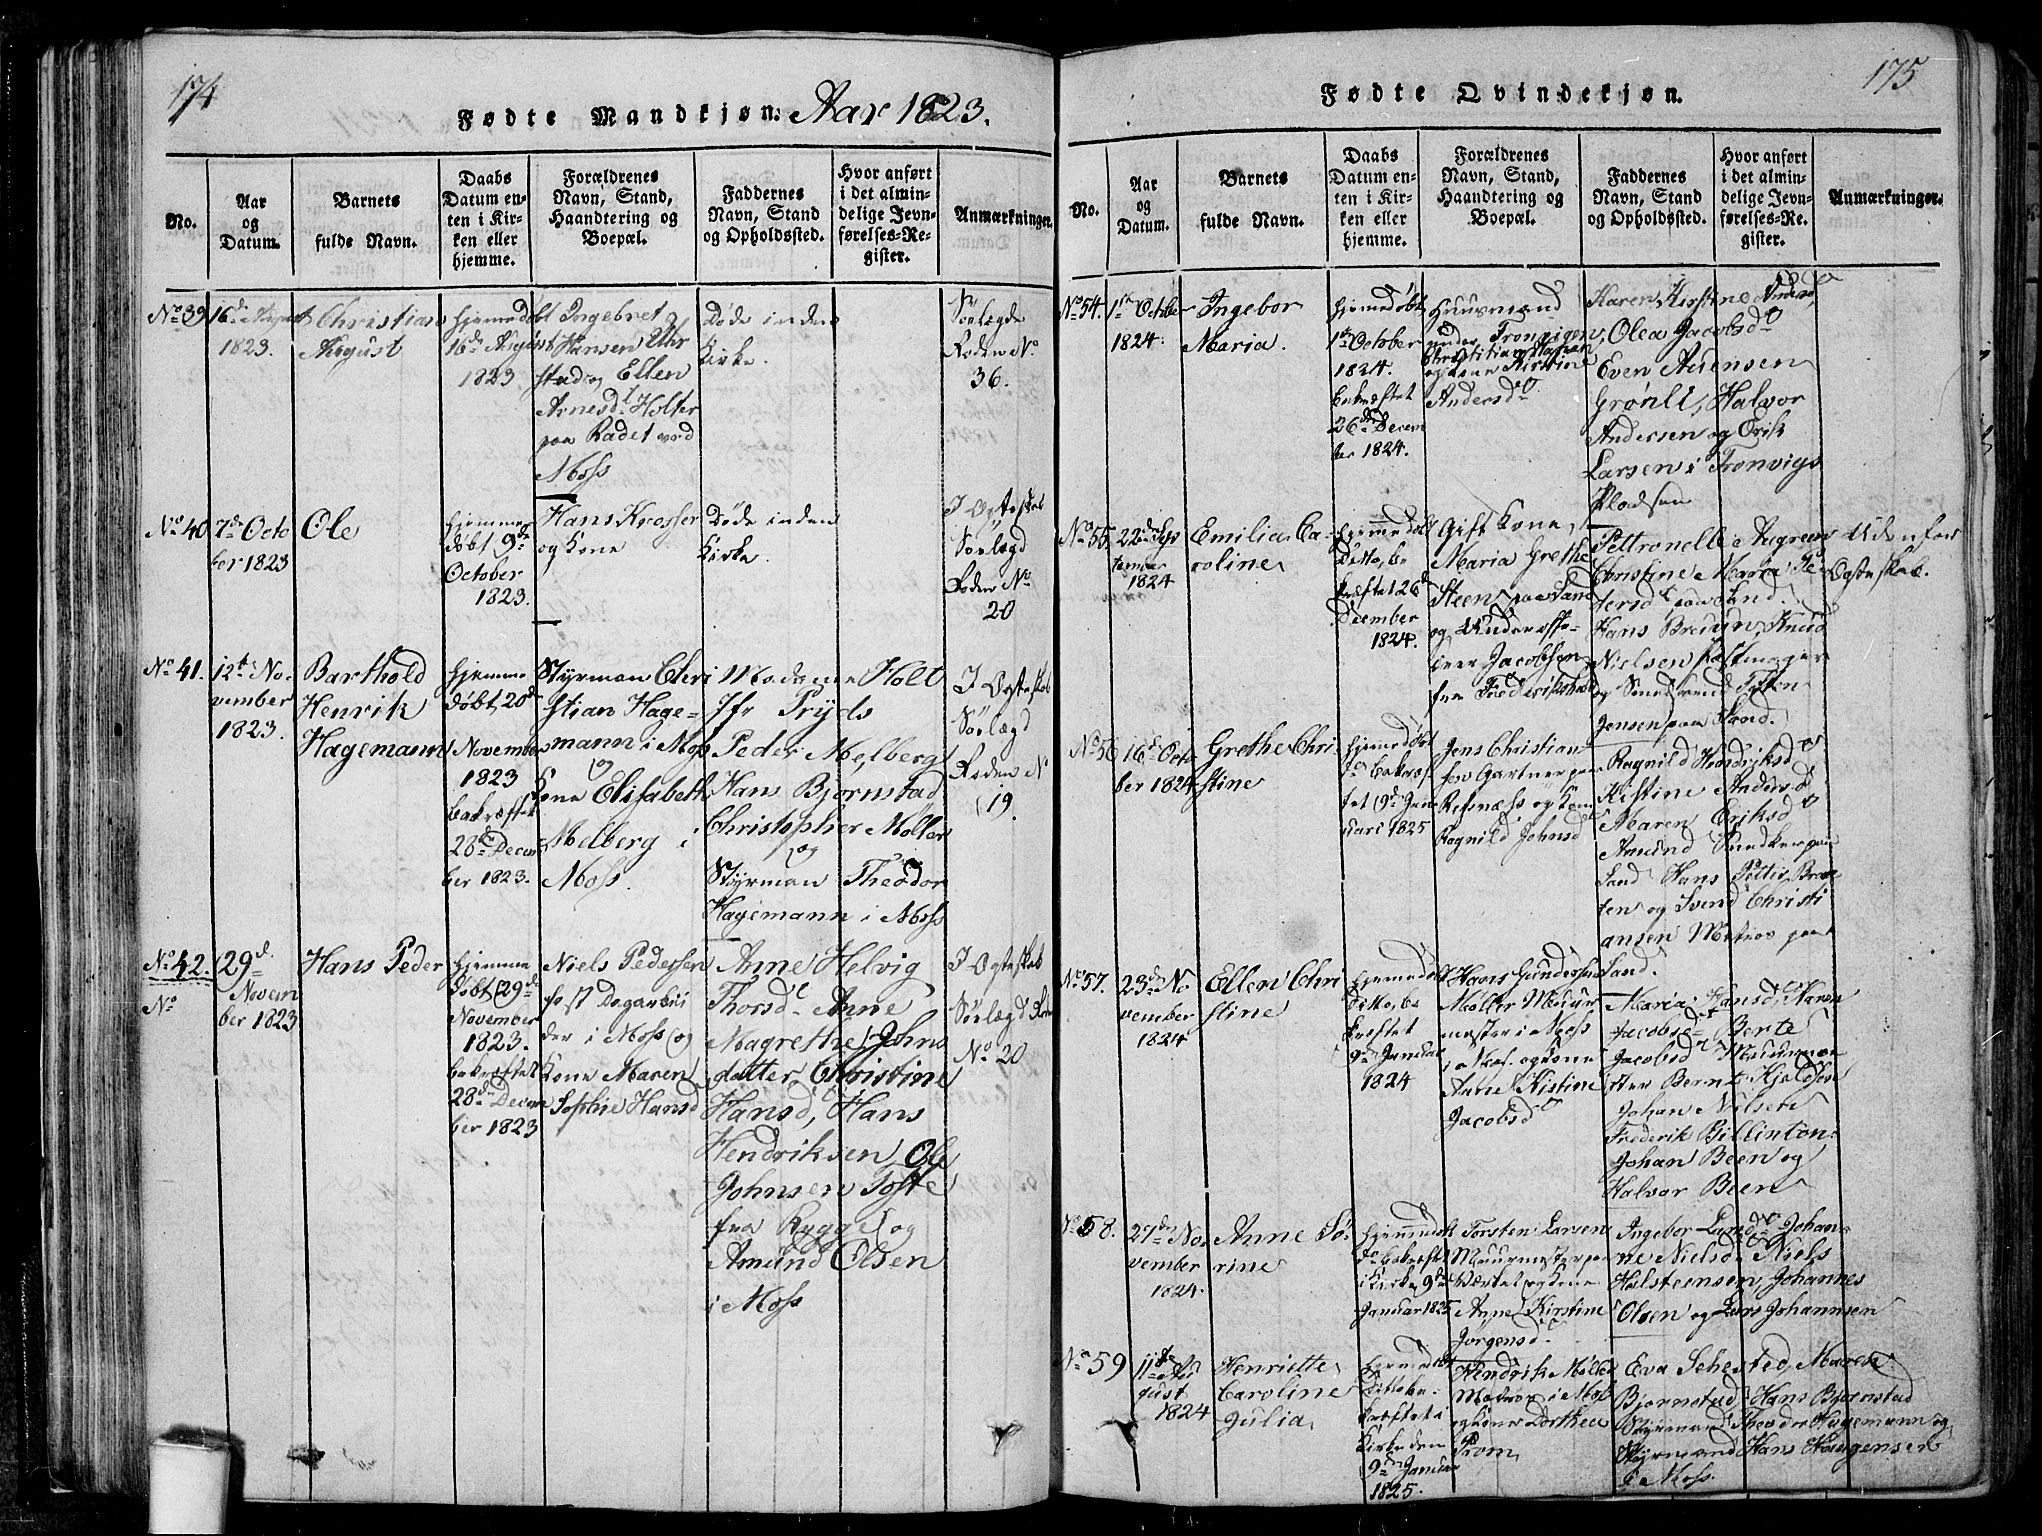 174
Fødte Mandkjøn: Aar 1823.
No.
Aar
og
Datum.
Barnets
fulde Navn.
Daabs
Datum en-
ten i Kir-
ken eller
hjemme.
Forældrenes
Navn, Stand,
Haandtering og
Boepæl.
Faddernes
Navn, Stand
og Opholdssted.
Hvor anført
i det almin-
delige Jevn-
førelses-Re-
gister.
Anmærkninger.
No 39
16de August
1823.
Christian
August
hjemedöbt
16de August
1823
Ingebret
Hansen
stad og Ellen
Arnesd. Holter
paa Radet ved
Moss
Døde inden
Kirke.
Sölægds
Roden No
36.
No 40
7de Octo
ber 1823
Ole
hjemme
döbt 9de
October
1823.
Hans Krosser
og Kone
Døde inden
Kirke.
I Ægteskab
Sölægd
Roden No
20
No 41.
12te No
vember
1823.
Barthold
Henrik
Hagemann
hjemme
döbt 20de
November
1823
bekræftet
28de Decem
ber 1823.
Styrman Chri
stian Hage-
mann i Moss
og
Kone Elisabeth
Melberg i
Moss.
Madame Holt
Jfr Pryds
Peder Melberg
Hans Bjornstad
Christopher Møller
og
Styrman Theodor
Hagemann i Moss
I Ægteskab
Sölægd
Roden No
19.
No 42.
29de
Novem
ber 1823
Hans Peder
hjemme
döbt 29de
November
1823.
bekræftet
28de Decem
ber 1823
Niels Pedersen
fest Dagarbei
der i Moss og
Kone Maren
Sophie Hansd
Anne Helvig
Thorsd. Anne
Magrethe Johns
datter, Christine
Hansd, Hans
Hendriksen Ole
Johnsen Tofte
fra Rygge og
Amund Olsen
i Moss
I Ægteskab
Sölægd Roden
No 20
No
175
Fødte Qvindekjøn.
No.
Aar
og
Datum.
Barnets
fulde Navn.
Daabs
Datum en-
ten i Kir-
ken eller
hjemme.
Forældrenes
Navn, Stand,
Haandtering og
Boepæl.
Faddernes
Navn, Stand
og Opholdssted.
Hvor anført
i det almin-
delige Jevn-
førelses-Re-
gister.
Anmærkninger.
No 54.
1ste Octbe
1824.
Ingebor
Maria.
hjemedöbt
1ste October
1824.
bekræftet
26de Decem
ber 1824.
Huusmand
under Tronvigen,
Christian Hansen
og Kone Kirstine
Andersd
Karen Kirstine Andersd
Olea Jacobsd
Even Auensen
Grønli, Halvor
Andersen og Erik
Larsen i Tronvigs
Pladsen
No 55.
22de Sep
tember
1824
Emilia Ca-
roline
hjemmedöbt
Ditto, be
kræftet 26de
December
1824.
Gift Kone,
Maria Grethe
Steen paa Sand
og Underoffe-
ceer Jacobsen
fra Frederikshald
Pettronelle Augreen
Christine Maria Pe
tersd paa Sand.
Hans Bredsen, Knud
Nielsen Postmager
og Smedsvend Torsten
Jensen paa Sand.
Udenfor
Ægteskab.
No 56
16de Octo
ber 1824
Grethe Chri
stine
hjemedöbt
do bekræf
tet 9de Jan
uari 1825
Jens Christian
sen Gartner paa
Refsnæss og Kone
Ragnild Johnsd
Ragnild Hendriksd
Kistine Andersd
Maren Eriksd
Amund Snedker paa
Sand Hans Petter Braa
ten og Svend Christi
ansen Matros paa
Sand.
No 57.
23de No
vember
1824
Ellen Chri
stine
hjemmedöbt
Ditto, be
kræftet
9de Januar
1824
Hans Gundersen
Møller Muur
mester i Moss
i Moss. og Kone
Anne Kistine
Jacobsd
Maria Hansd, Maren
Jacobsd Berte
Jacobsd Muurmæ
ster Bernt Kjeldsen
Johan Nilsen
Frederik Billinton
Johan Been og
Halvor Been
No 58.
27de No
vember
1824.
Anne Sö
rine
hjemmedöbt
do bekræft
i Kirke 9de
Januar 1825
Torsten Larsen
Muurmester paa
Værket og Kone
Anne Kirstine
Jørgensd.
Ingebor Larsd Johan-
ne Nielsd, Niels
Holsteensen, Johannes
Olsen og Lars Johannsen
No 59
11te Au
gust
1824
Henriette
Caroline
Julia
hjemmedöbt
Ditto be-
kræftet i
Kirke den
9de Januar
1825.
Hendrik Møller
Matros i Moss
og Kone Dorthea
From
Eva Schested, Maren
Bjornstad Hans Bjornstad
Styrmand Theodor Hagemann og
Styrmand Hans Haagensen
i Moss.